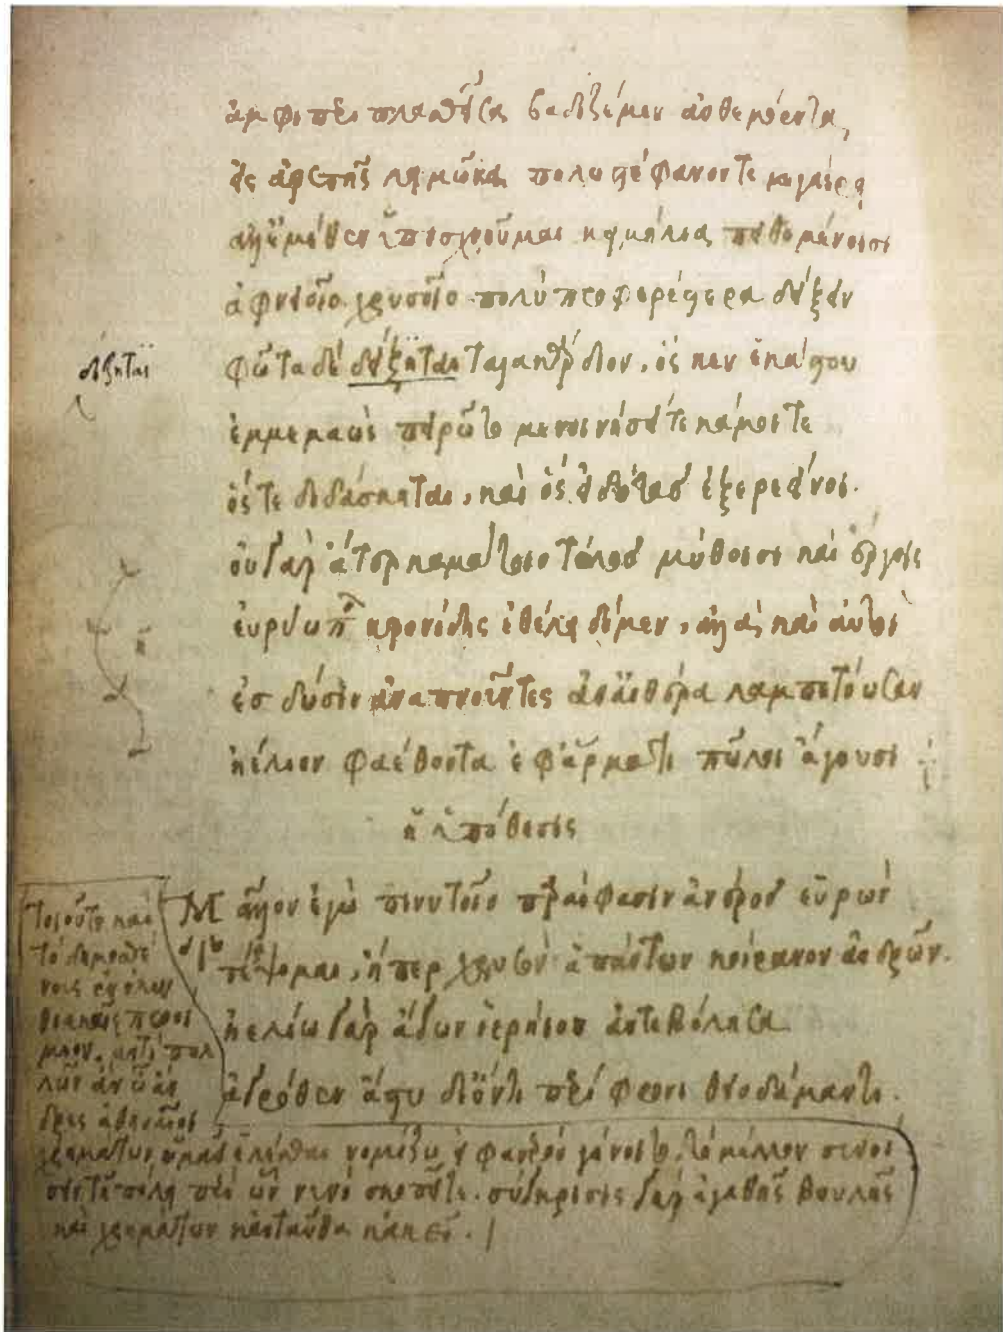 ἀμφιπεριπλασθεῖσα βαδιζέμεν ἀνθεμόεντα,
ἐς ἀρετῆς λειμῶνα πολυστέφανόν τε μεγαίρει
ἀλλ' ἐμέθεν ὑποσχοῦμαι κειμήλια πειθομένοισι
ἀφνειοῖο χρυσοῖο πολὺ προφερέστερα δείξειν
δίζηται
φῶτα δὲ δείξηται ταλακάρδιον, ὅς κεν ἑκάστου
ἐμμεμαὼς πειρῷτο μενοινήσειέ τε κάμοι τε
ὅς τε διδάσκηται, καὶ ὃς εἰδότας ἐξερεείνοι.
οὐ γὰρ ἄτερ καμάτοιο τέλος μύθοισι καὶ ἔργοις
εὐρύωπα κρονίδης ἐθέλει δόμεν, ἀλλὰ καὶ αὐτοὶ
ἐς δύσιν ἀναπνείοντες ἀν' αἰθέρα λαμπετόωσαν
ἠέλιον φαέθοντα ἐφ' ἅρματι πῶλοι ἄγουσι
ἡ ὑπόθεσις
Μᾶλλον ἐγὼ πινυτοῖο παραίφασιν ἀνδρὸς εὑρὼν
τέρψομαι, ἤπερ χρυσὸν ἁπάντων κοίρανον ἀνδρῶν.
ἠελίω γὰρ ἄγων ἱερήιον ἀντεβόλησα
ἀγρόθεν ἄστυ δ' ἰόντι περίφρονι θειοδάμαντι.
τοιοῦτο καὶ
τὸ δημοσθέ
νους ἐν ὀλυν
θιακοῖς προοί
μιον. ἀντὶ πολ
λῶν ἂν ὦ ἄν
δρες ἀθηναῖοι
χρημάτων ὑμᾶς ἑλέσθαι νομίζω εἰ φανερὸν γένοιτο τὸ μέλλον συνοί
σειν τῇ πόλει περὶ ὧν νυνὶ σκοπεῖτε. σύγκρισις γὰρ ἀγαθῆς βουλῆς
καὶ χρημάτων κἀνταῦθα κἀκεῖ.